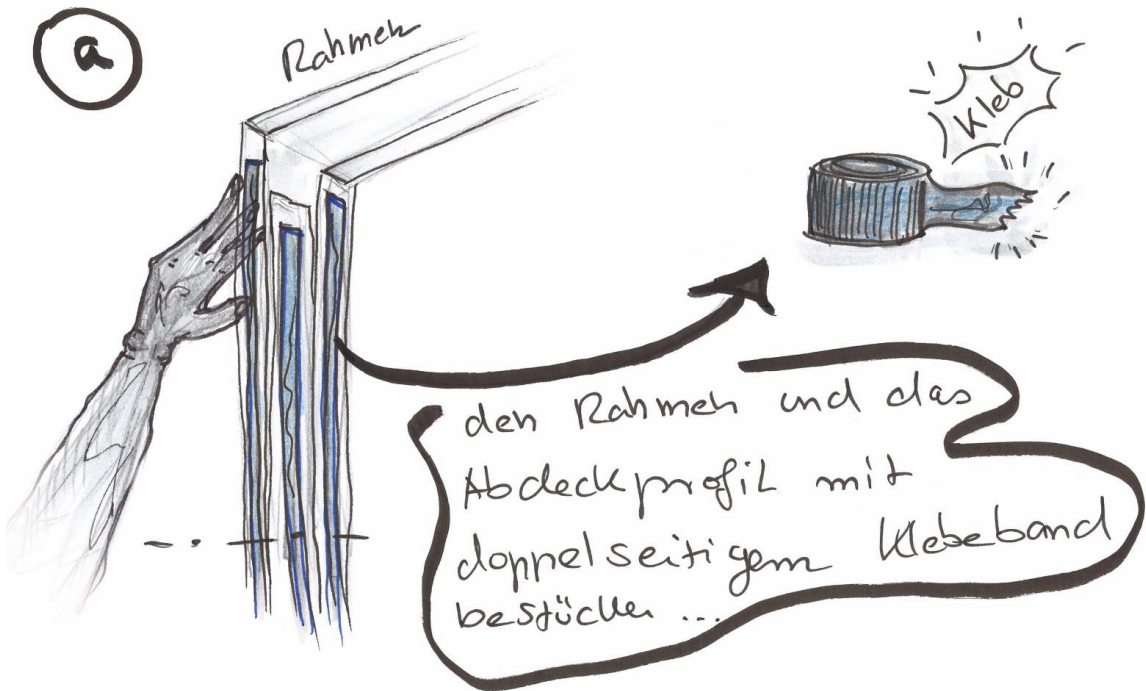 a
Rahmen
Kleb
den Rahmen und das
Abdeckprofil mit
doppelseitigem Klebeband
bestücken ...